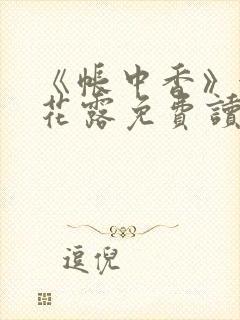 《帳中香》
花露免費讀
逗倪